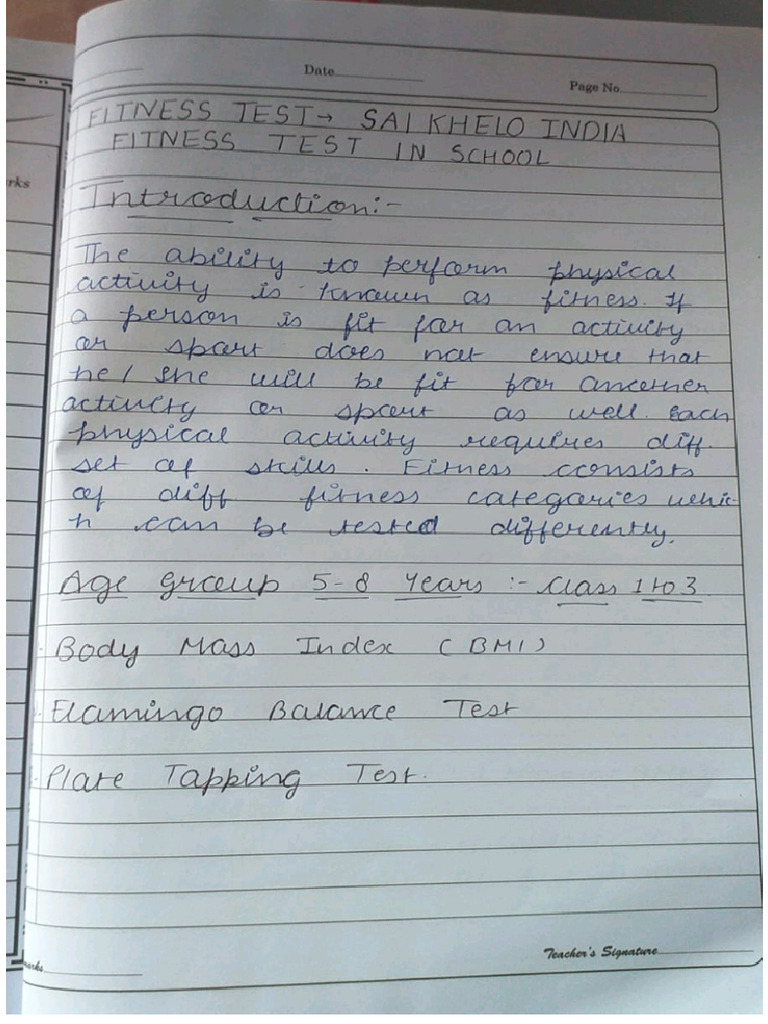 Date
Page No.
FITNESS TEST → SAI KHELO INDIA
FITNESS TEST IN SCHOOL
rks
Introduction:-
The ability to perform physical
activity is known as fitness. If
a person is fit for an activity
or sport does not ensure that
he / she will be fit for another
activity or sport as well. Each
physical activity requires diff.
set of skills. Fitness consists
of diff fitness categories whic
h can be tested differently.
Age group 5-8 Years :- Class 1 to 3
Body Mass Index (BMI)
Flamingo Balance Test
Plate Tapping Test.
Teacher's Signature
arks